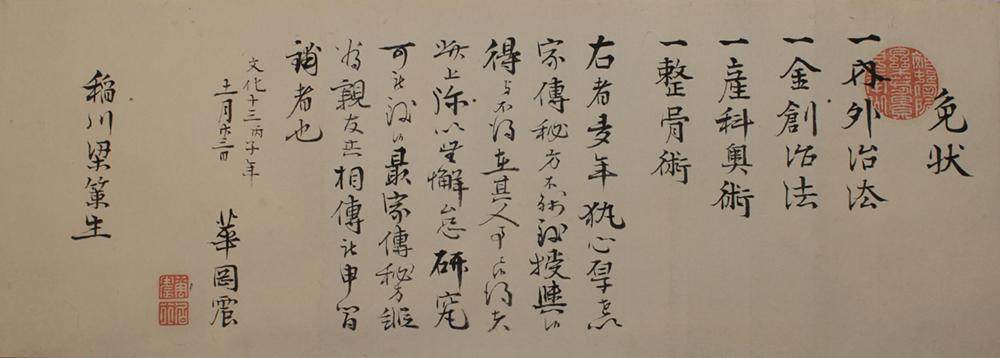 免状
一内外治法
一金創治法
一産科奥術
一整骨術
右者多年執心厚志
家傳秘方不残致授與候
得与不得在其人
此上 無懈怠研究
可被致候最家傳秘方縦
為親友 相傳被申間
鋪者也
文化十三丙子年
十一月廿三日
華岡震
稲川梁策生